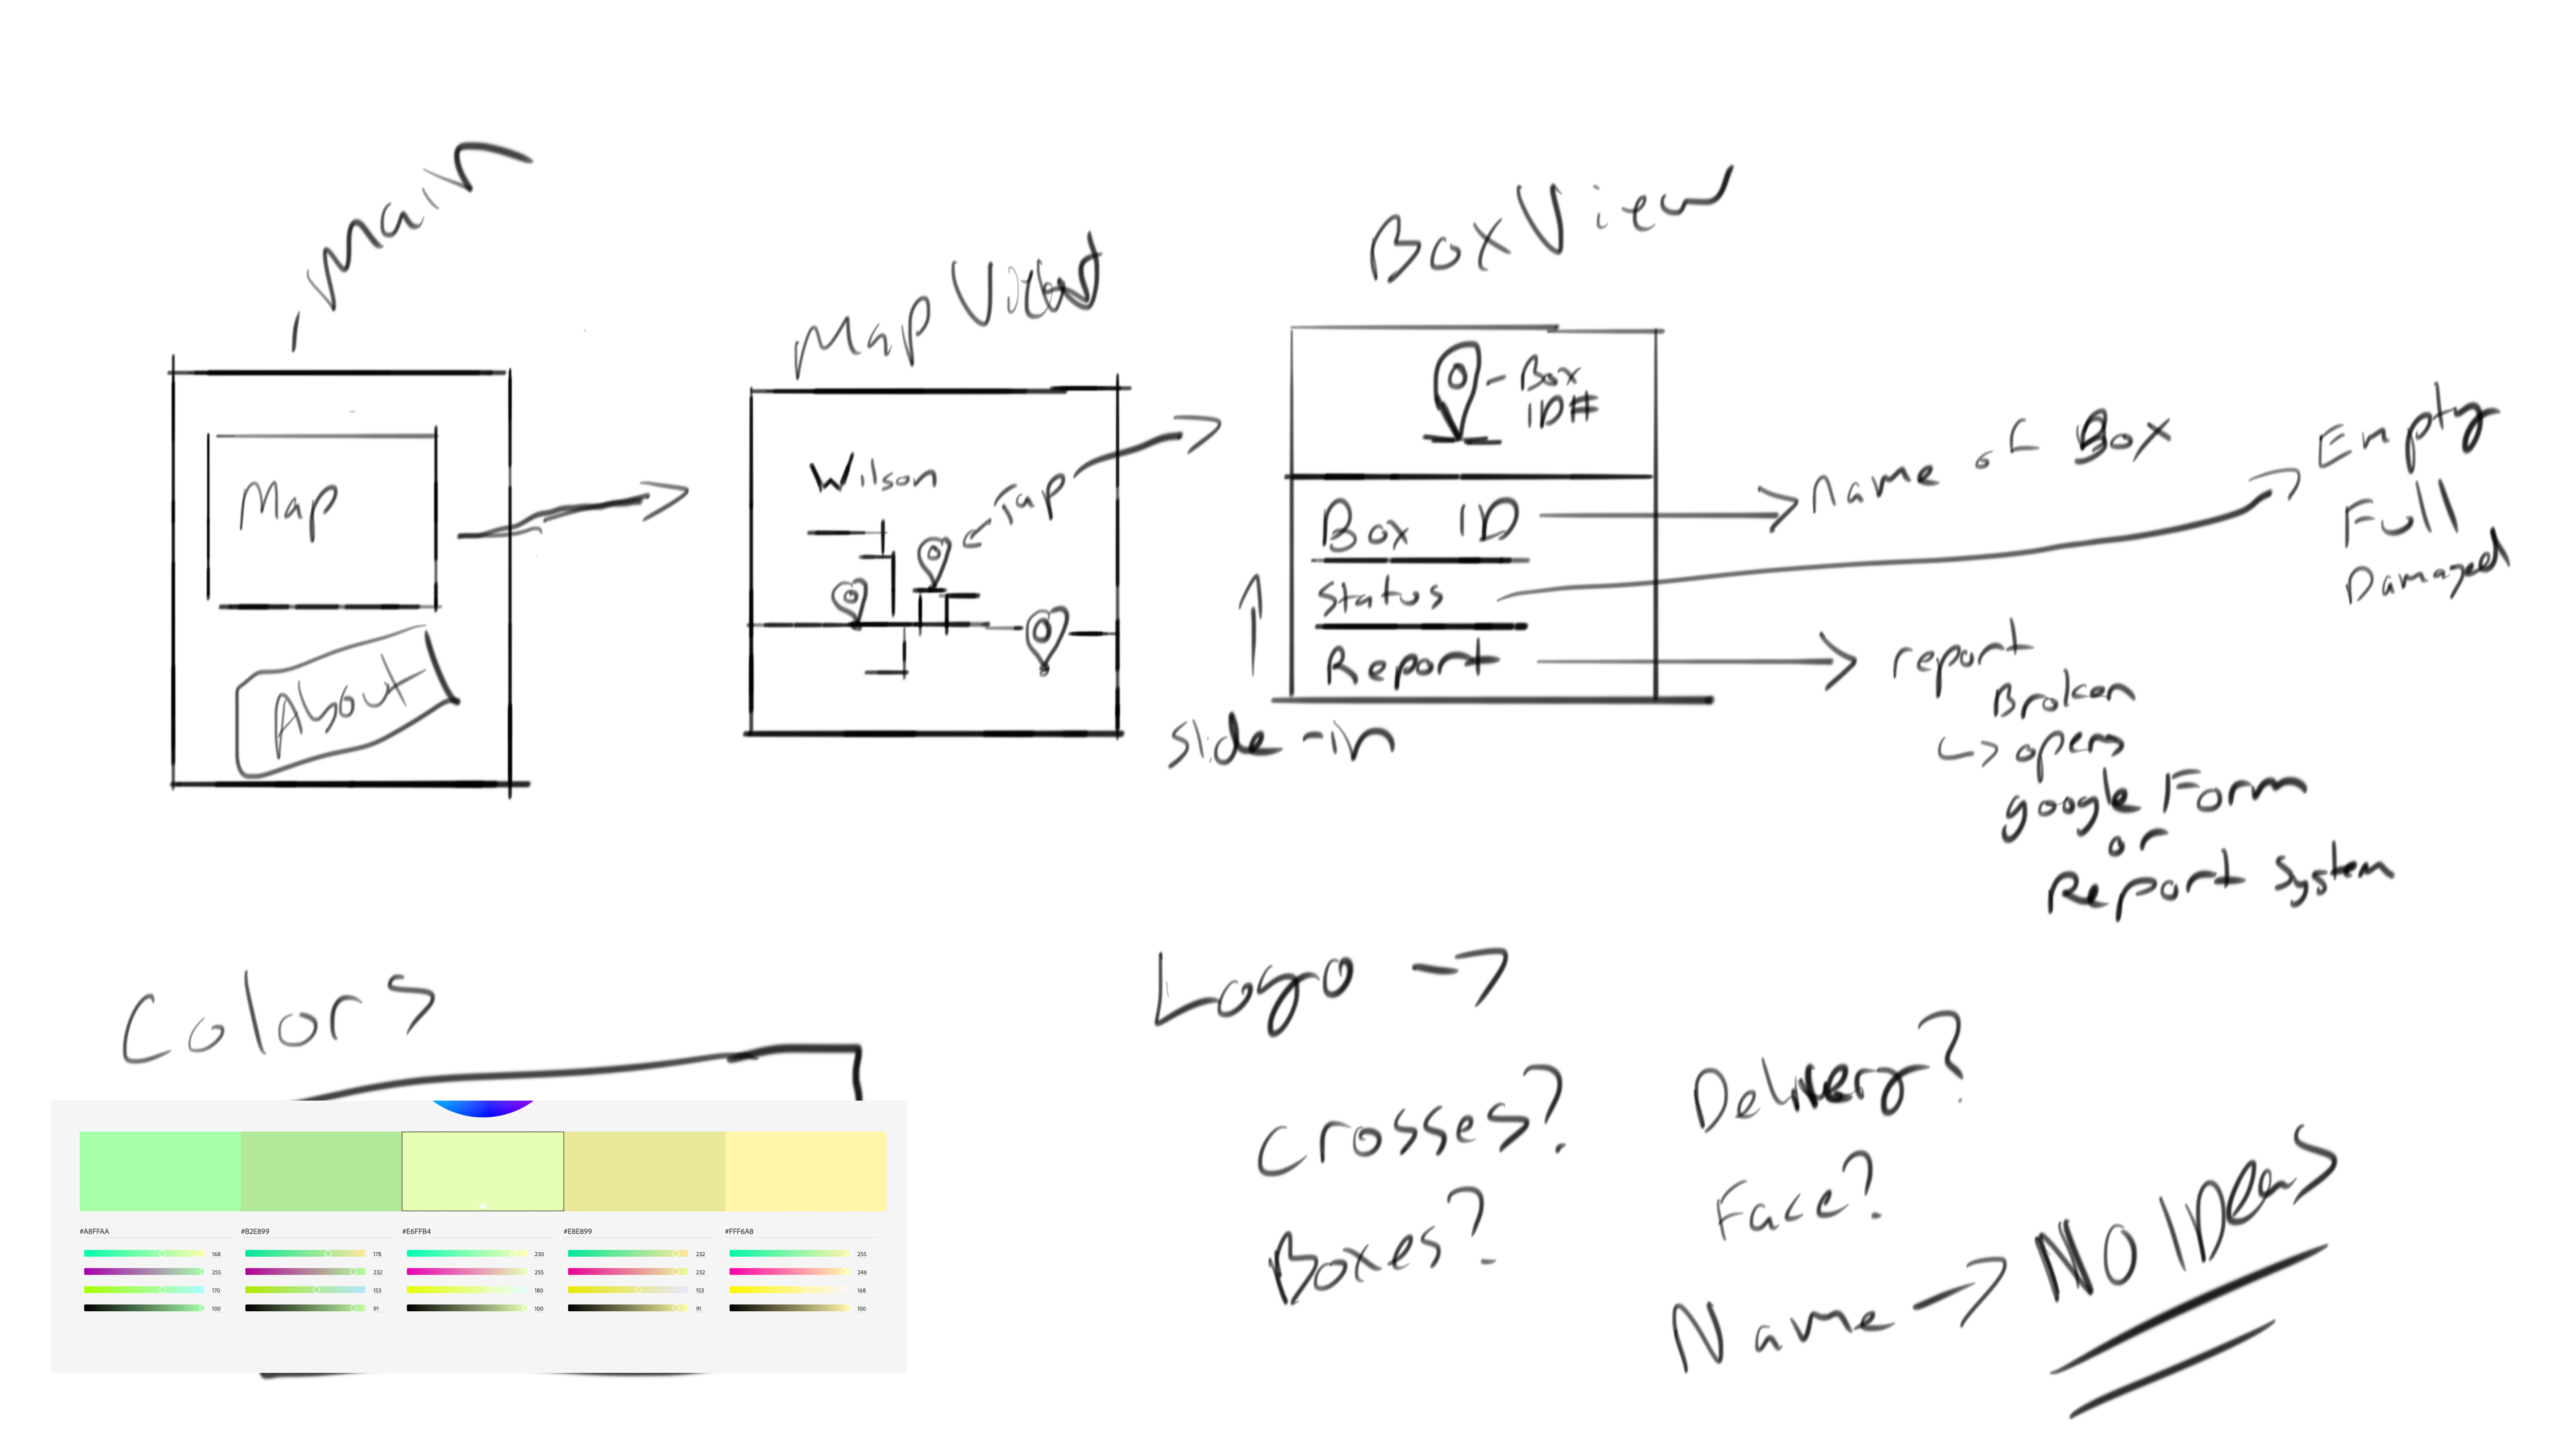 Main
Map
About
Map View
Wilson
Tap
Box View
Box
ID#
Box ID
Status
Report
slide-in
Name of Box
Empty
Full
Damaged
report
Broken
opens
google Form
or
Report System
Colors
#A8FFAA
168
255
170
100
#B2E899
178
232
153
91
#E6FFB4
230
255
180
100
#E8E899
232
232
153
91
#FFF6A8
255
246
168
100
Logo
Crosses?
Boxes?
Delivery?
Face?
Name
NO IDeas